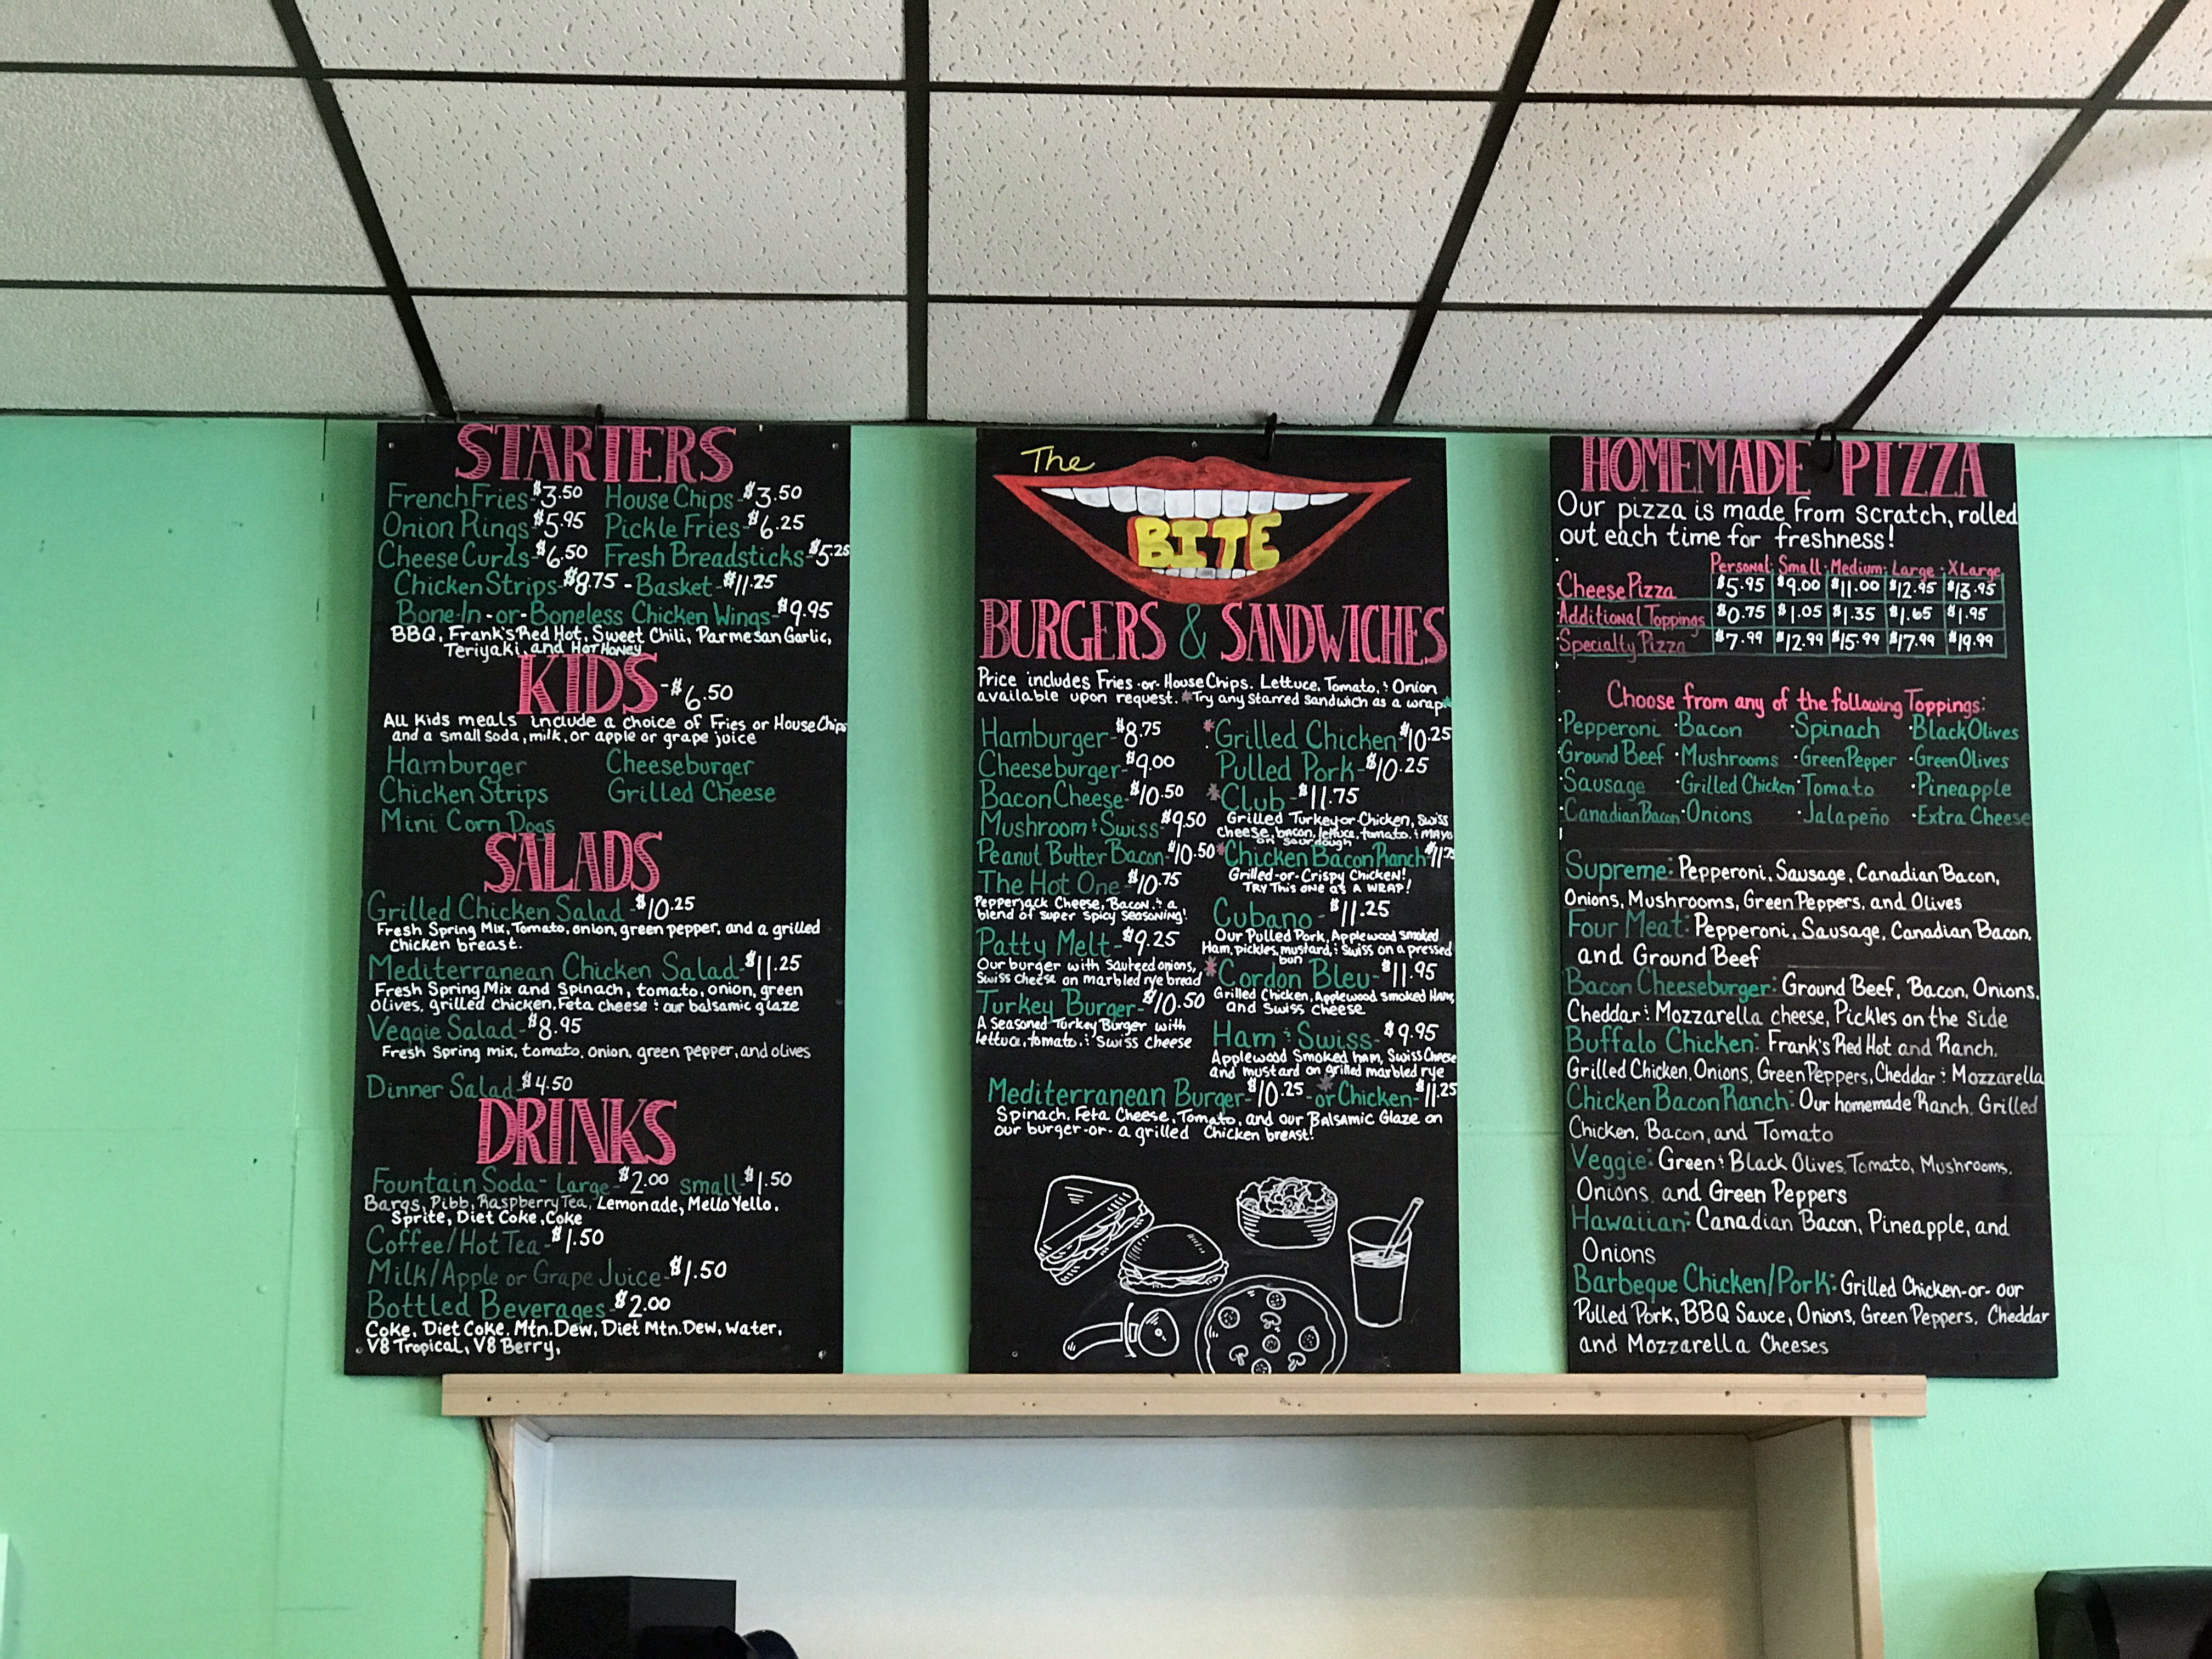 STARTERS
French Fries-$3.50 House Chips-$3.50
Onion Rings-$5.95 Pickle Fries-$6.25
Cheese Curds-$6.50 Fresh Breadsticks-$5.25
Chicken Strips-$8.75 - Basket-$11.25
Bone-In-or-Boneless Chicken Wings-$9.95
BBQ, Frank's Red Hot, Sweet Chili, Parmesan Garlic,
Teriyaki, and Hot Honey
KIDS-$6.50
All Kids meals include a choice of Fries or House Chips
and a small soda, milk, or apple or grape juice
Hamburger Cheeseburger
Chicken Strips Grilled Cheese
Mini Corn Dogs
SALADS
Grilled Chicken Salad-$10.25
Fresh Spring Mix, Tomato, onion, green pepper, and a grilled
Chicken breast.
Mediterranean Chicken Salad-$11.25
Fresh Spring Mix and Spinach, tomato, onion, green
Olives, grilled chicken, Feta cheese & our balsamic glaze
Veggie Salad-$8.95
Fresh Spring mix, tomato, onion, green pepper, and olives
Dinner Salad-$4.50
DRINKS
Fountain Soda- Large-$2.00 small-$1.50
Barqs, Pibb, Raspberry Tea, Lemonade, Mello Yello,
Sprite, Diet Coke, Coke
Coffee/Hot Tea-$1.50
Milk/Apple or Grape Juice-$1.50
Bottled Beverages-$2.00
Coke, Diet Coke, Mtn.Dew, Diet Mtn.Dew, Water,
V8 Tropical, V8 Berry,
The
BITE
BURGERS & SANDWICHES
Price includes Fries -or- House Chips. Lettuce, Tomato, & Onion
available upon request. *Try any starred sandwich as a wrap*
Hamburger-$8.75
Cheeseburger-$9.00
Bacon Cheese-$10.50
Mushroom & Swiss-$9.50
Peanut Butter Bacon-$10.50
The Hot One-$10.75
Pepperjack Cheese, Bacon, & a
blend of super spicy seasoning!
Patty Melt-$9.25
Our burger with sauteed onions,
Swiss Cheese on marbled rye bread
Turkey Burger-$10.50
A Seasoned Turkey Burger with
lettuce, tomato, & Swiss cheese
*Grilled Chicken-$10.25
Pulled Pork-$10.25
*Club-$11.75
Grilled Turkey or Chicken, Swiss
cheese, bacon, lettuce, tomato, & MAYO
on sourdough
*Chicken Bacon Ranch-$11.25
Grilled-or-Crispy Chicken!
Try This one as a WRAP!
Cubano-$11.25
Our Pulled Pork, Applewood smoked
Ham, pickles, mustard, & Swiss on a pressed
bun
*Cordon Bleu-$11.95
Grilled Chicken, Applewood smoked Ham,
and Swiss cheese
Ham & Swiss-$9.95
Applewood Smoked ham, Swiss Cheese
and mustard on grilled marbled rye
Mediterranean Burger-$10.25-or *Chicken-$11.25
Spinach, Feta Cheese, Tomato, and our Balsamic Glaze on
our burger-or- a grilled Chicken breast!
HOMEMADE PIZZA
Our pizza is made from scratch, rolled
out each time for freshness!
Personal Small Medium Large XLarge
Cheese Pizza $5.95 $9.00 $11.00 $12.95 $13.95
Additional Toppings $0.75 $1.05 $1.35 $1.65 $1.95
Specialty Pizza $7.99 $12.99 $15.99 $17.99 $19.99
Choose from any of the following Toppings:
·Pepperoni ·Bacon ·Spinach ·Black Olives
·Ground Beef ·Mushrooms ·Green Pepper ·Green Olives
·Sausage ·Grilled Chicken ·Tomato ·Pineapple
·Canadian Bacon ·Onions ·Jalapeño ·Extra Cheese
Supreme: Pepperoni, Sausage, Canadian Bacon,
Onions, Mushrooms, Green Peppers, and Olives
Four Meat: Pepperoni, Sausage, Canadian Bacon,
and Ground Beef
Bacon Cheeseburger: Ground Beef, Bacon, Onions,
Cheddar & Mozzarella cheese, Pickles on the side
Buffalo Chicken: Frank's Red Hot and Ranch,
Grilled Chicken, Onions, Green Peppers, Cheddar & Mozzarella
Chicken Bacon Ranch: Our homemade Ranch, Grilled
Chicken, Bacon, and Tomato
Veggie: Green & Black Olives, Tomato, Mushrooms,
Onions, and Green Peppers
Hawaiian: Canadian Bacon, Pineapple, and
Onions
Barbeque Chicken/Pork: Grilled Chicken-or- our
Pulled Pork, BBQ Sauce, Onions, Green Peppers, Cheddar
and Mozzarella Cheeses